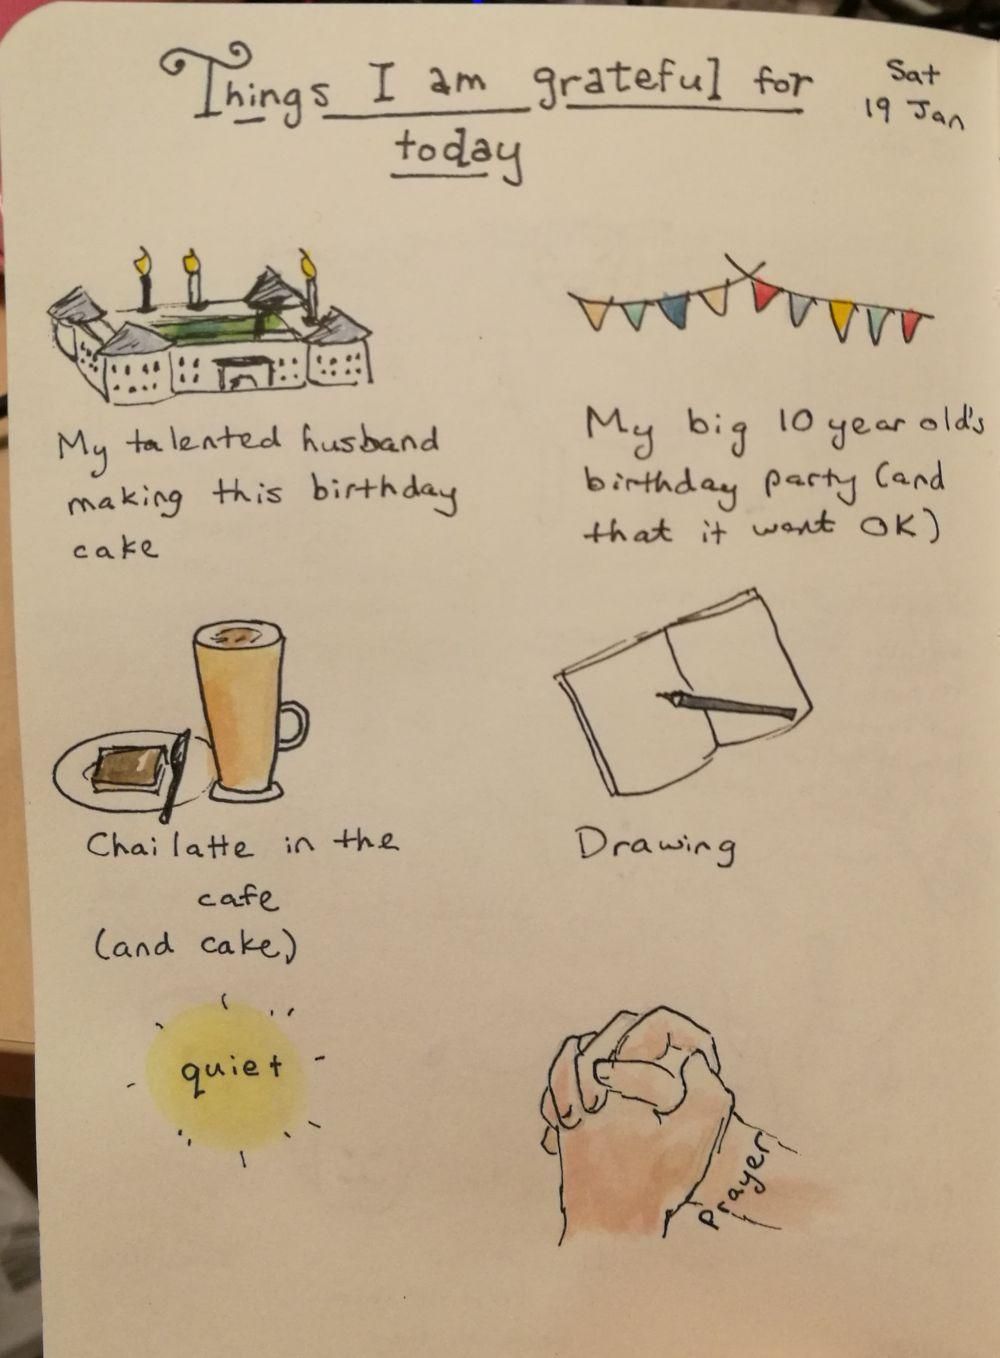 Things I am grateful for
today
Sat
19 Jan
My talented husband
making this birthday
cake
My big 10 year old's
birthday party (and
that it went OK)
Chai latte in the
cafe
(and cake)
Drawing
quiet
prayer